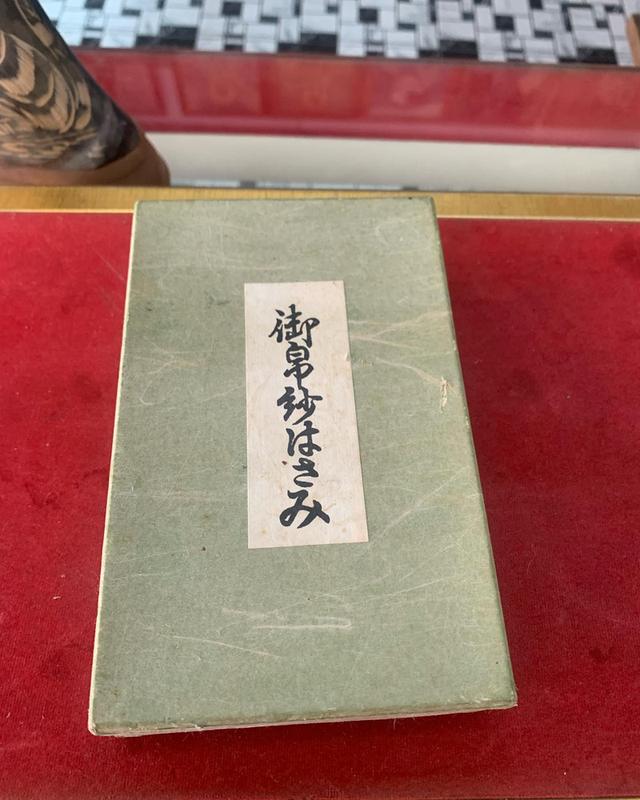 御帛紗はさみ